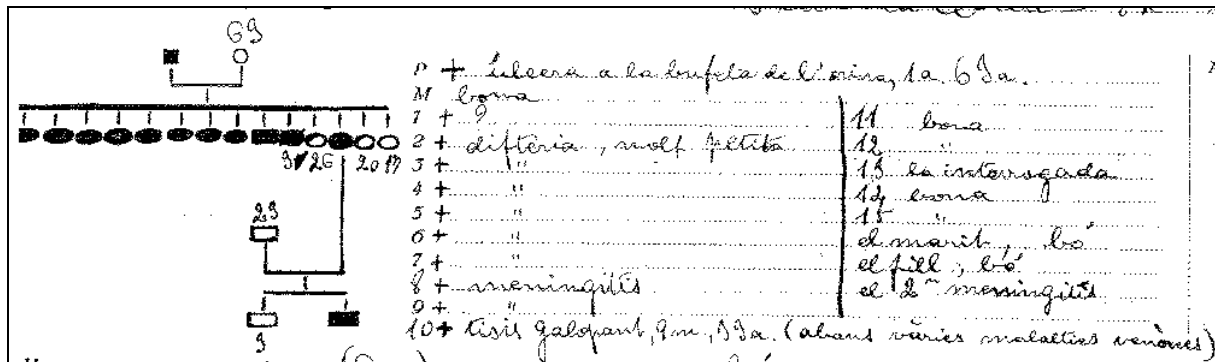 69
P + úlcera a la bufeta de l'orina, 1a. 63a.
M bona
1 + ?
2 + diftèria, molt petita
3 + "
4 + "
5 + "
6 + "
7 + "
8 + meningitis
9 + "
10 + tisis galopant, 9m, 33a. (abans vàries malalties)
11 bona
12 "
13 la interrogada
14 bona
15 "
el marit, bó
el fill, bó
el 2on meningitis
26 20 17
23
3